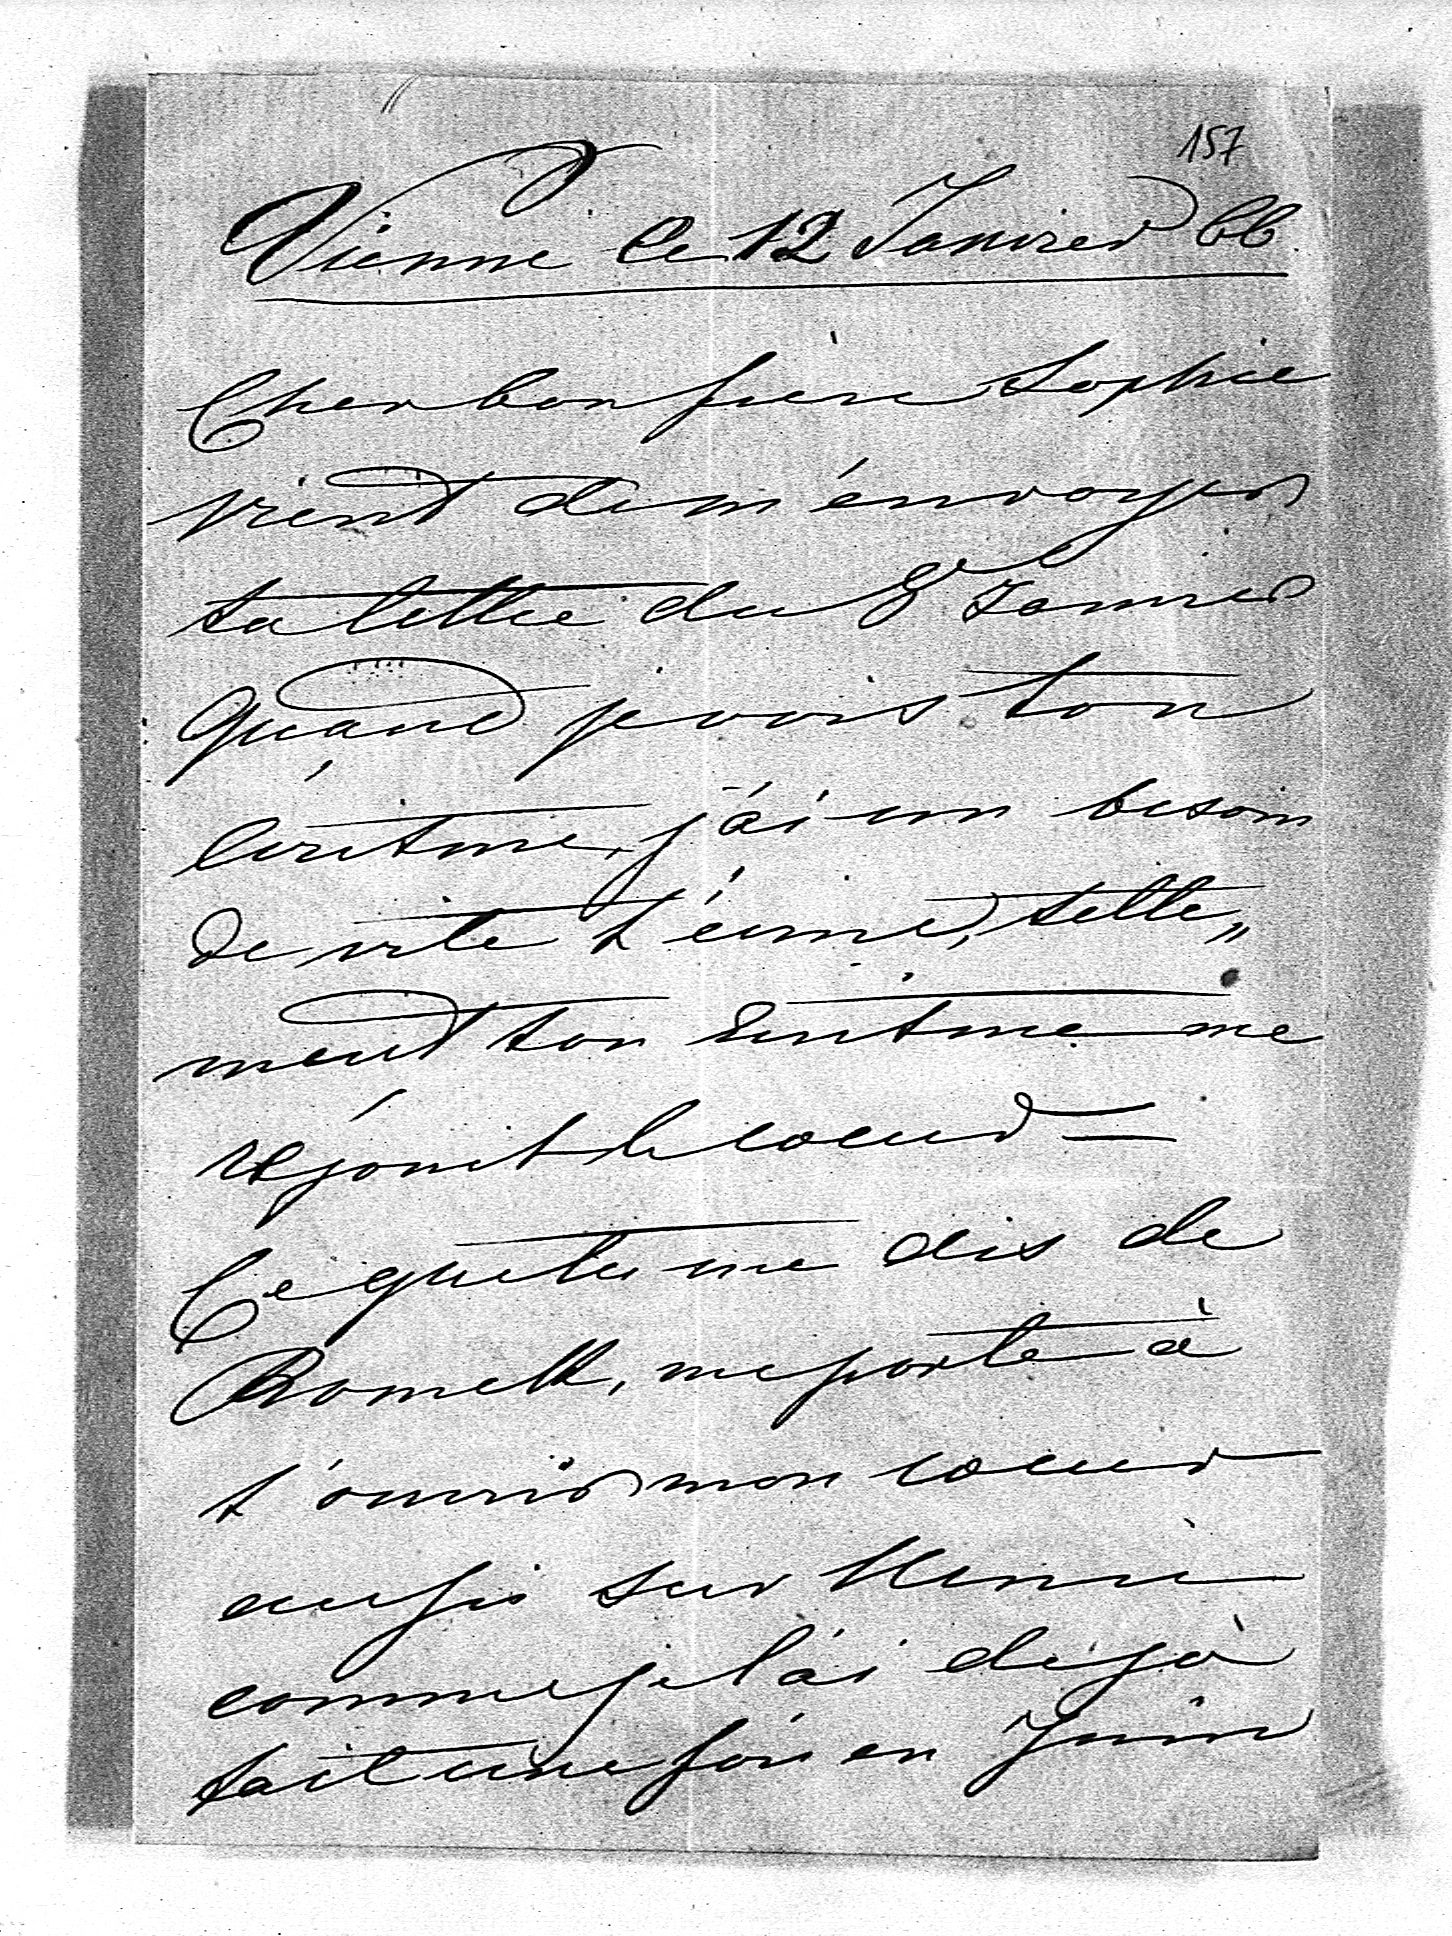 157
Vienne le 12 Janvier 66.
Cher bon frère Sophie
vient de m'énvoyer
ta lettre du 8 Janvier
Quand je vois ton
écritme, j'ai un besoin
de vite t'écrire, telle„
ment ton écritme me
réjouit le coeur =
Ce que tu me dis de
me porte à
t'ouvrir mon coeur
aussi sur Henri
comme je l'ai dejà
fait une fois en Juin